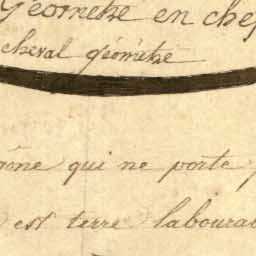 Géometre en chef
cheval géometre
qui ne porte
est terre laboura